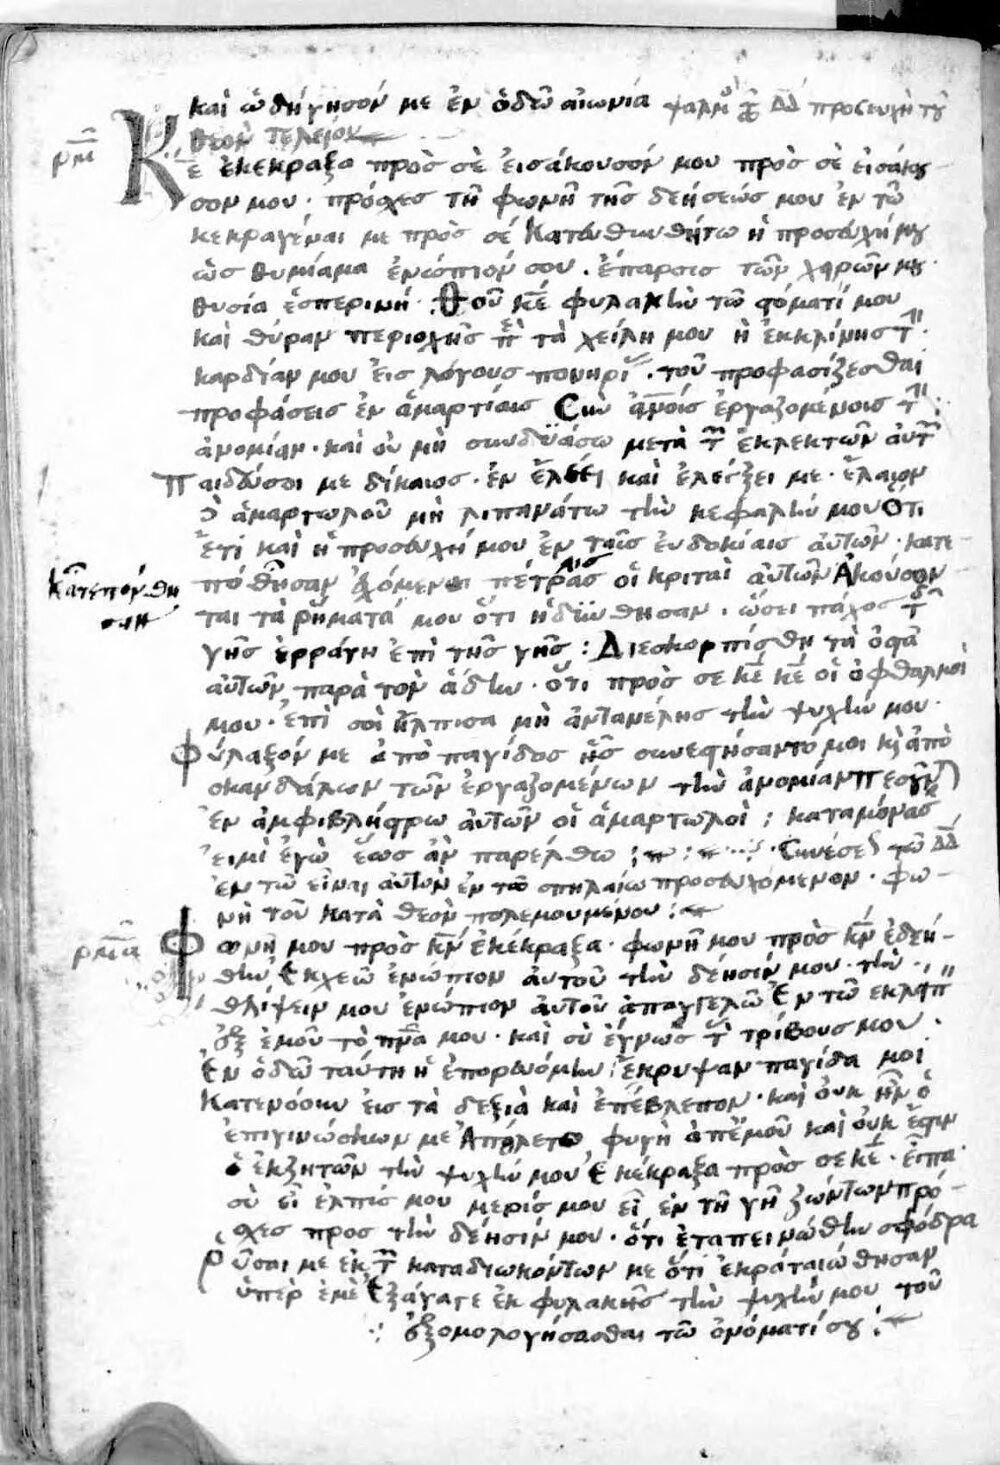 καὶ ὡδήγησόν με ἐν ὁδῶ αἰωνία ψαλμ τῶ δαδ προσευχὴ τοῦ
θεὸν τελείου
ρμ Κε ἐκέκραξα πρὸς σὲ ἐισάκουσόν μου πρὸς σὲ εἰσάκου
σον μου · πρόσχες τῆ φωνῆ τῆς δεήσεώς μου ἐν τῶ
κεκραγέναι με πρὸς σέ Κατευθυνθήτω ἡ προσευχή μου
ὡς θυμίαμα ἐνώπιόν σου . ἔπαρσις τῶν χειρῶν μου ·
θυσία ἑσπερινή · Θοῦ κε φυλακὴν τῶ στόματί μου
καὶ θύραν περιοχῆς ἐπὶ τὰ χείλη μου ἡ ἐκκλίνης τὴν
καρδίαν μου ἐις λόγους πονηρί . τοῦ προφασίζεσθαι
προφάσεις ἐν ἁμαρτίαις Σὺν ἀνοις ἐργαζομένοις τὴν
ἀνομίαν · καὶ οὐ μὴ συνδυάσω μετὰ τῶν ἐκλεκτῶν αὐτῶν
Παιδεύσει με δίκαιος · ἐν ἐλέει καὶ ἐλέγξει με · ἔλαιον
δὲ ἁμαρτωλοῦ μὴ λιπανάτω τὴν κεφαλήν μου Ὅτι
ἔτι καὶ ἡ προσευχή μου ἐν ταῖς εὐδοκίαις αὐτῶν · κατε
πόθησαν ἐχόμενοι πέτρας οἱ κριταὶ αὐτῶν Ἀκούσον
κατεπόνθη
σαν
ται τὰ ρήματά μου ὅτι ἡδύνθησαν . ὡσει πάχος τῆς
γῆς ἐρράγη ἐπὶ τῆς γῆς : Διεσκορπίσθη τὰ ὀστᾶ
αὐτῶν παρὰ τὸν ἅδην · ὅτι πρὸς σε κε κε οἱ ὀφθαλμοί
μου · ἐπὶ σοὶ ἤλπισα μὴ ἀντανέλης τὴν ψυχήν μου ·
Φύλαξόν με ἀπὸ παγίδος ἧς συνεστήσαντό μοι κὶ ἀπὸ
σκανδάλων τῶν ἐργαζομένων τὴν ἀνομίαν Πεσοῦν
ἐν ἀμφιβλήστρω αὐτῶν οἱ ἁμαρτωλοί : καταμόνας
εἰμὶ ἐγὼ ἕως ἂν παρέλθω : Συνέσε τῶ δαδ
ἐν τῶ εἶναι αὐτὸν ἐν τῶ σπηλαίω προσευχόμενον · φω
νὴ τοῦ κατὰ θεὸν πολεμουμένου :
ρμα Φωνῆ μου πρὸς κν ἐκέκραξα · φωνῆ μου πρὸς κν ἐδεή
θην Ἐκχεῶ ἐνώπιον αὐτοῦ τὴν δέησίν μου · τὴν
θλίψειν μου ἐνώπιον αὐτοῦ ἀπαγγελῶ Ἐν τῶ εκλειπ
ἐξ ἐμοῦ τὸ πνα μου · καὶ σὺ ἔγνως τὰς τρίβους μου .
Ἐν ὁδῶ ταύτη ἧ ἐπορευόμην ἔκρυψαν παγίδα μοι
Κατενόουν εἰς τὰ δεξιὰ καὶ ἐπέβλεπον · καὶ οὐκ ἦν ὁ
ἐπιγινώσκων με Ἀπώλετο φυγὴ ἀπ' ἐμοῦ καὶ οὐκ ἔστιν
ὁ ἐκζητῶν τὴν ψυχήν μου Ἐκέκραξα πρὸς σε κε · εἶπα ·
σὺ εἶ ἐλπίς μου μερίς μου εἶ ἐν τῆ γῆ ζώντων πρό
σχες προς τὴν δέησίν μου · ὅτι ἐταπεινώθην σφόδρα
Ρῦσαι με ἐκ τῶν καταδιωκόντων με ὅτι ἐκραταιώθησαν
ὑπὲρ ἐμὲ Ἐξάγαγε ἐκ φυλακῆς τὴν ψυχήν μου τοῦ
ἐξομολογήσασθαι τῶ ὀνόματί σου :